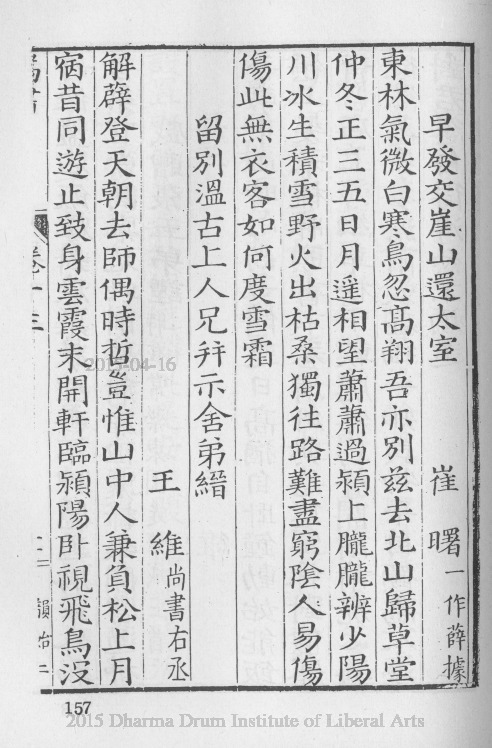 早發交崖山還太室 崔曙一作薛據
東林氣微白寒鳥忽髙翔吾亦别兹去北山歸草堂
仲冬正三五日月遥相望蕭蕭過潁上朧朧辨少陽
川冰生積雪野火出枯桑獨往路難盡窮陰人易傷
傷此無衣客如何度雪霜
留别溫古上人兄并示舍弟縉
王維尚書右丞
解薜登天朝去師偶時哲豈惟山中人兼負松上月
宿昔同遊止致身雲霞末開軒臨潁陽卧視飛鳥沒
卷十三
157
2015-04-16
2015 Dharma Drum Institute of Liberal Arts